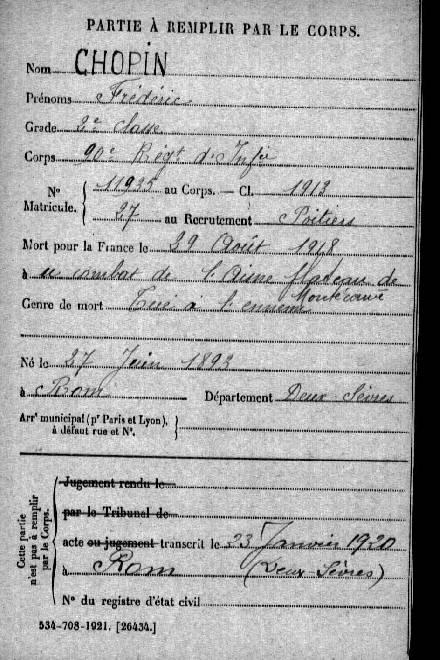 PARTIE À REMPLIR PAR LE CORPS.
Nom CHOPIN
Prénoms Frédéric
Grade 2e classe
Corps 90e Régt d'Infie
No Matricule. { 11935 au Corps. — Cl. 1913
27 au Recrutement Poitiers
Mort pour la France le 29 Août 1918
à combat de l'Aisne plateau de
Genre de mort Tué à l'ennemi
Né le 27 Juin 1893
à Rom Département Deux Sèvres
Arrt municipal (pr Paris et Lyon),
à défaut rue et No.
Cette partie
n'est pas à remplir
par le Corps.
Jugement rendu le
par le Tribunal de
acte ou jugement transcrit le 23 Janvier 1920
à Rom (Deux Sèvres)
No du registre d'état civil
534-708-1921. [26434.]